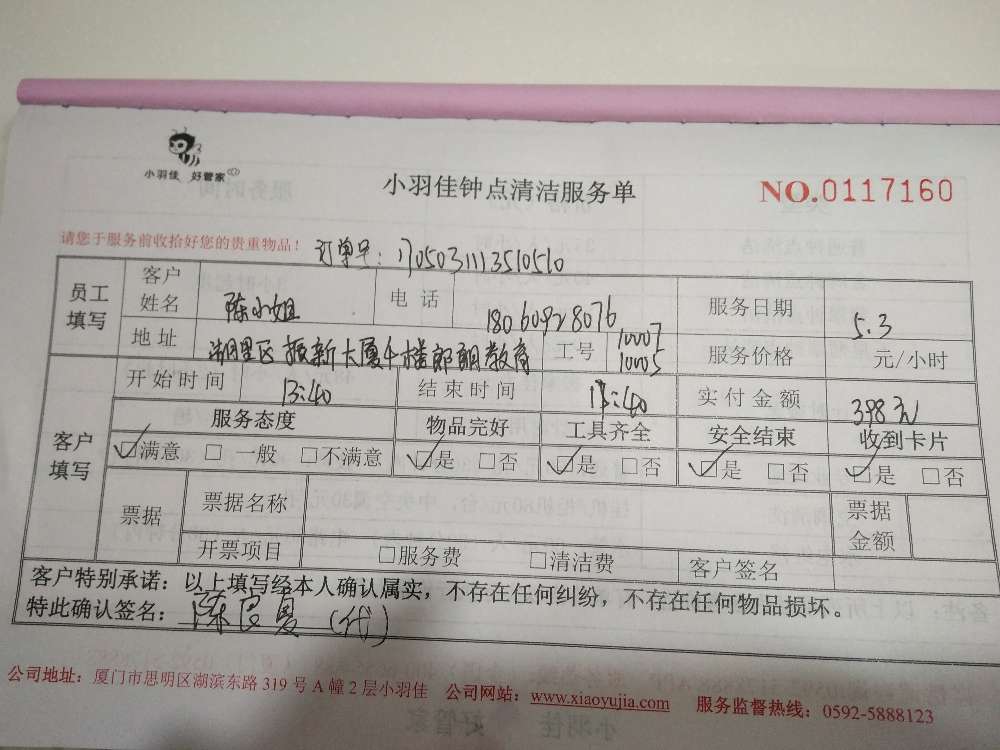 小羽佳 好管家
小羽佳钟点清洁服务单
NO.0117160
请您于服务前收拾好您的贵重物品！ 订单号：1705031113510510
员工填写 客户姓名 陈小姐 电话 18060928076 服务日期 5.3
地址 湖里区振新大厦 楼 朗教育 工号 10007 10005 服务价格 元/小时
客户填写 开始时间 13:40 结束时间 :40 实付金额 398元
服务态度 物品完好 工具齐全 安全结束 收到卡片
☑满意 □一般 □不满意 ☑是 □否 ☑是 □否 ☑是 □否 ☑是 □否
票据 票据名称 票据金额
开票项目 □服务费 □清洁费 客户签名
客户特别承诺：以上填写经本人确认属实，不存在任何纠纷，不存在任何物品损坏。
特此确认签名：陈良夏（代）
公司地址：厦门市思明区湖滨东路319号A幢2层小羽佳 公司网站：www.xiaoyujia.com 服务监督热线：0592-5888123